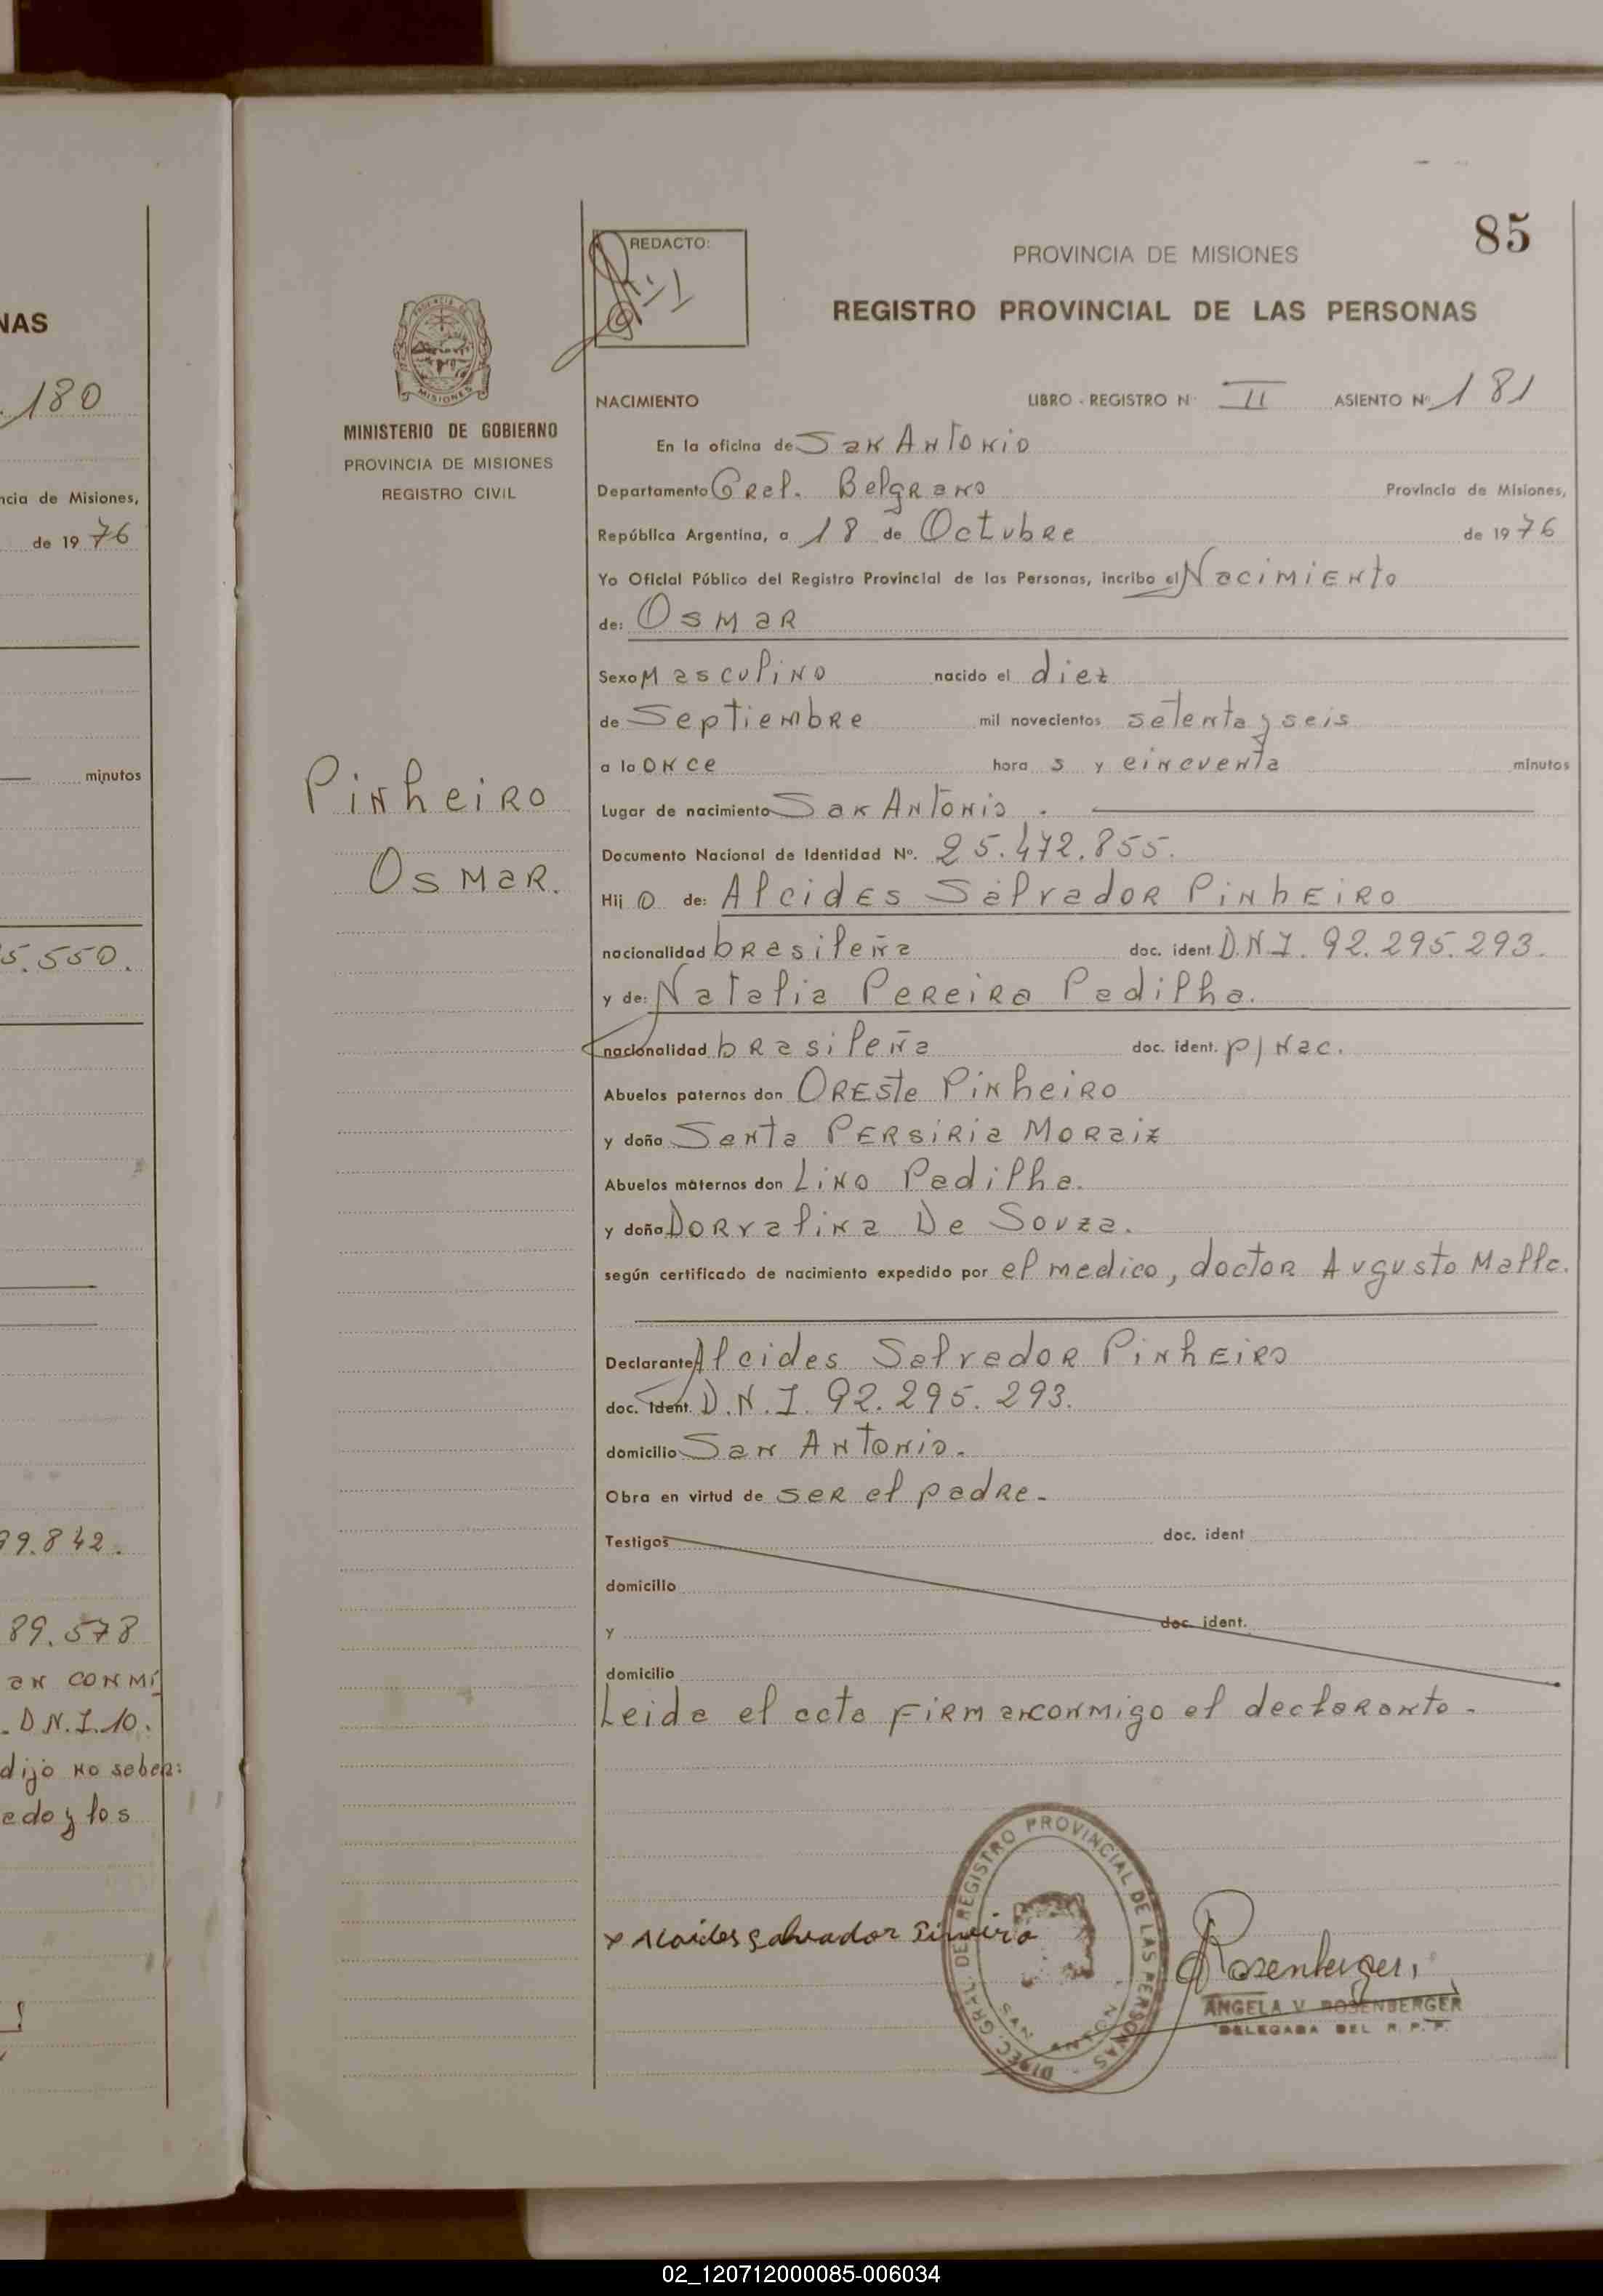 NAS
180
ncia de Misiones,
de 19 76
minutos
5.550.
99.842.
89.578
an conmi
. D.N.I. 10.
dijo no saber:
ado y los
85
REDACTO:
PROVINCIA DE MISIONES
REGISTRO PROVINCIAL DE LAS PERSONAS
MINISTERIO DE GOBIERNO
PROVINCIA DE MISIONES
REGISTRO CIVIL
NACIMIENTO LIBRO - REGISTRO Nº II ASIENTO Nº 181
En la oficina de San Antonio
Departamento Gral. Belgrano Provincia de Misiones,
República Argentina, a 18 de Octubre de 1976
Yo Oficial Público del Registro Provincial de las Personas, incribo el Nacimiento
de: Osmar
Sexo Masculino nacido el diez
de Septiembre mil novecientos setenta y seis
a la once hora s y cincuenta minutos
Pinheiro
Osmar.
Lugar de nacimiento San Antonio.
Documento Nacional de Identidad Nº. 25.472.855.
Hij o de: Alcides Salvador Pinheiro
nacionalidad brasileña doc. ident. D.N.I. 92.295.293.
y de: Natalia Pereira Padilha.
nacionalidad brasileña doc. ident. p/nac.
Abuelos paternos don Oreste Pinheiro
y doña Santa Persiria Moraiz
Abuelos maternos don Lino Padilha.
y doña Dorvalina De Souza.
según certificado de nacimiento expedido por el medico, doctor Augusto Mallc.
Declarante Alcides Salvador Pinheiro
doc. ident. D.N.I. 92.295.293.
domicilio San Antonio.
Obra en virtud de ser el padre.
Testigos doc. ident
domicilio
y doc. ident.
domicilio
Leida el acta firman conmigo el declarante.
x Alcides Salvador Pinheiro
DIREC. GRAL. DEL REGISTRO PROVINCIAL DE LAS PERSONAS
SAN ANTONIO
Rosenberger
ANGELA V. ROSENBERGER
DELEGADA DEL R. P. P.
02_120712000085-006034